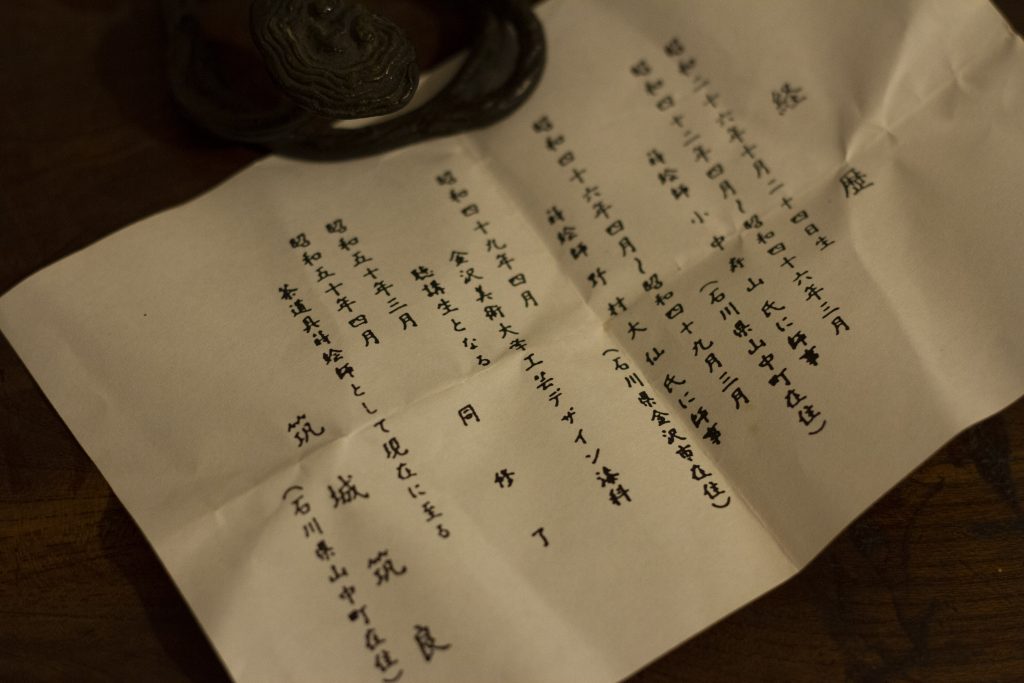 経歴
昭和二十六年十月二十四日生
昭和四十二年四月〜昭和四十六年三月
蒔絵師 小中寿山氏に師事
(石川県山中町在住)
昭和四十六年四月〜昭和四十九月三月
蒔絵師 野村大仙氏に師事
(石川県金沢市在住)
昭和四十九年四月
金沢美術大学工芸デザイン漆科
聴講生となる
昭和五十年三月
同修了
昭和五十年四月
茶道具蒔絵師として現在に至る
筑城筑良
(石川県山中町在住)